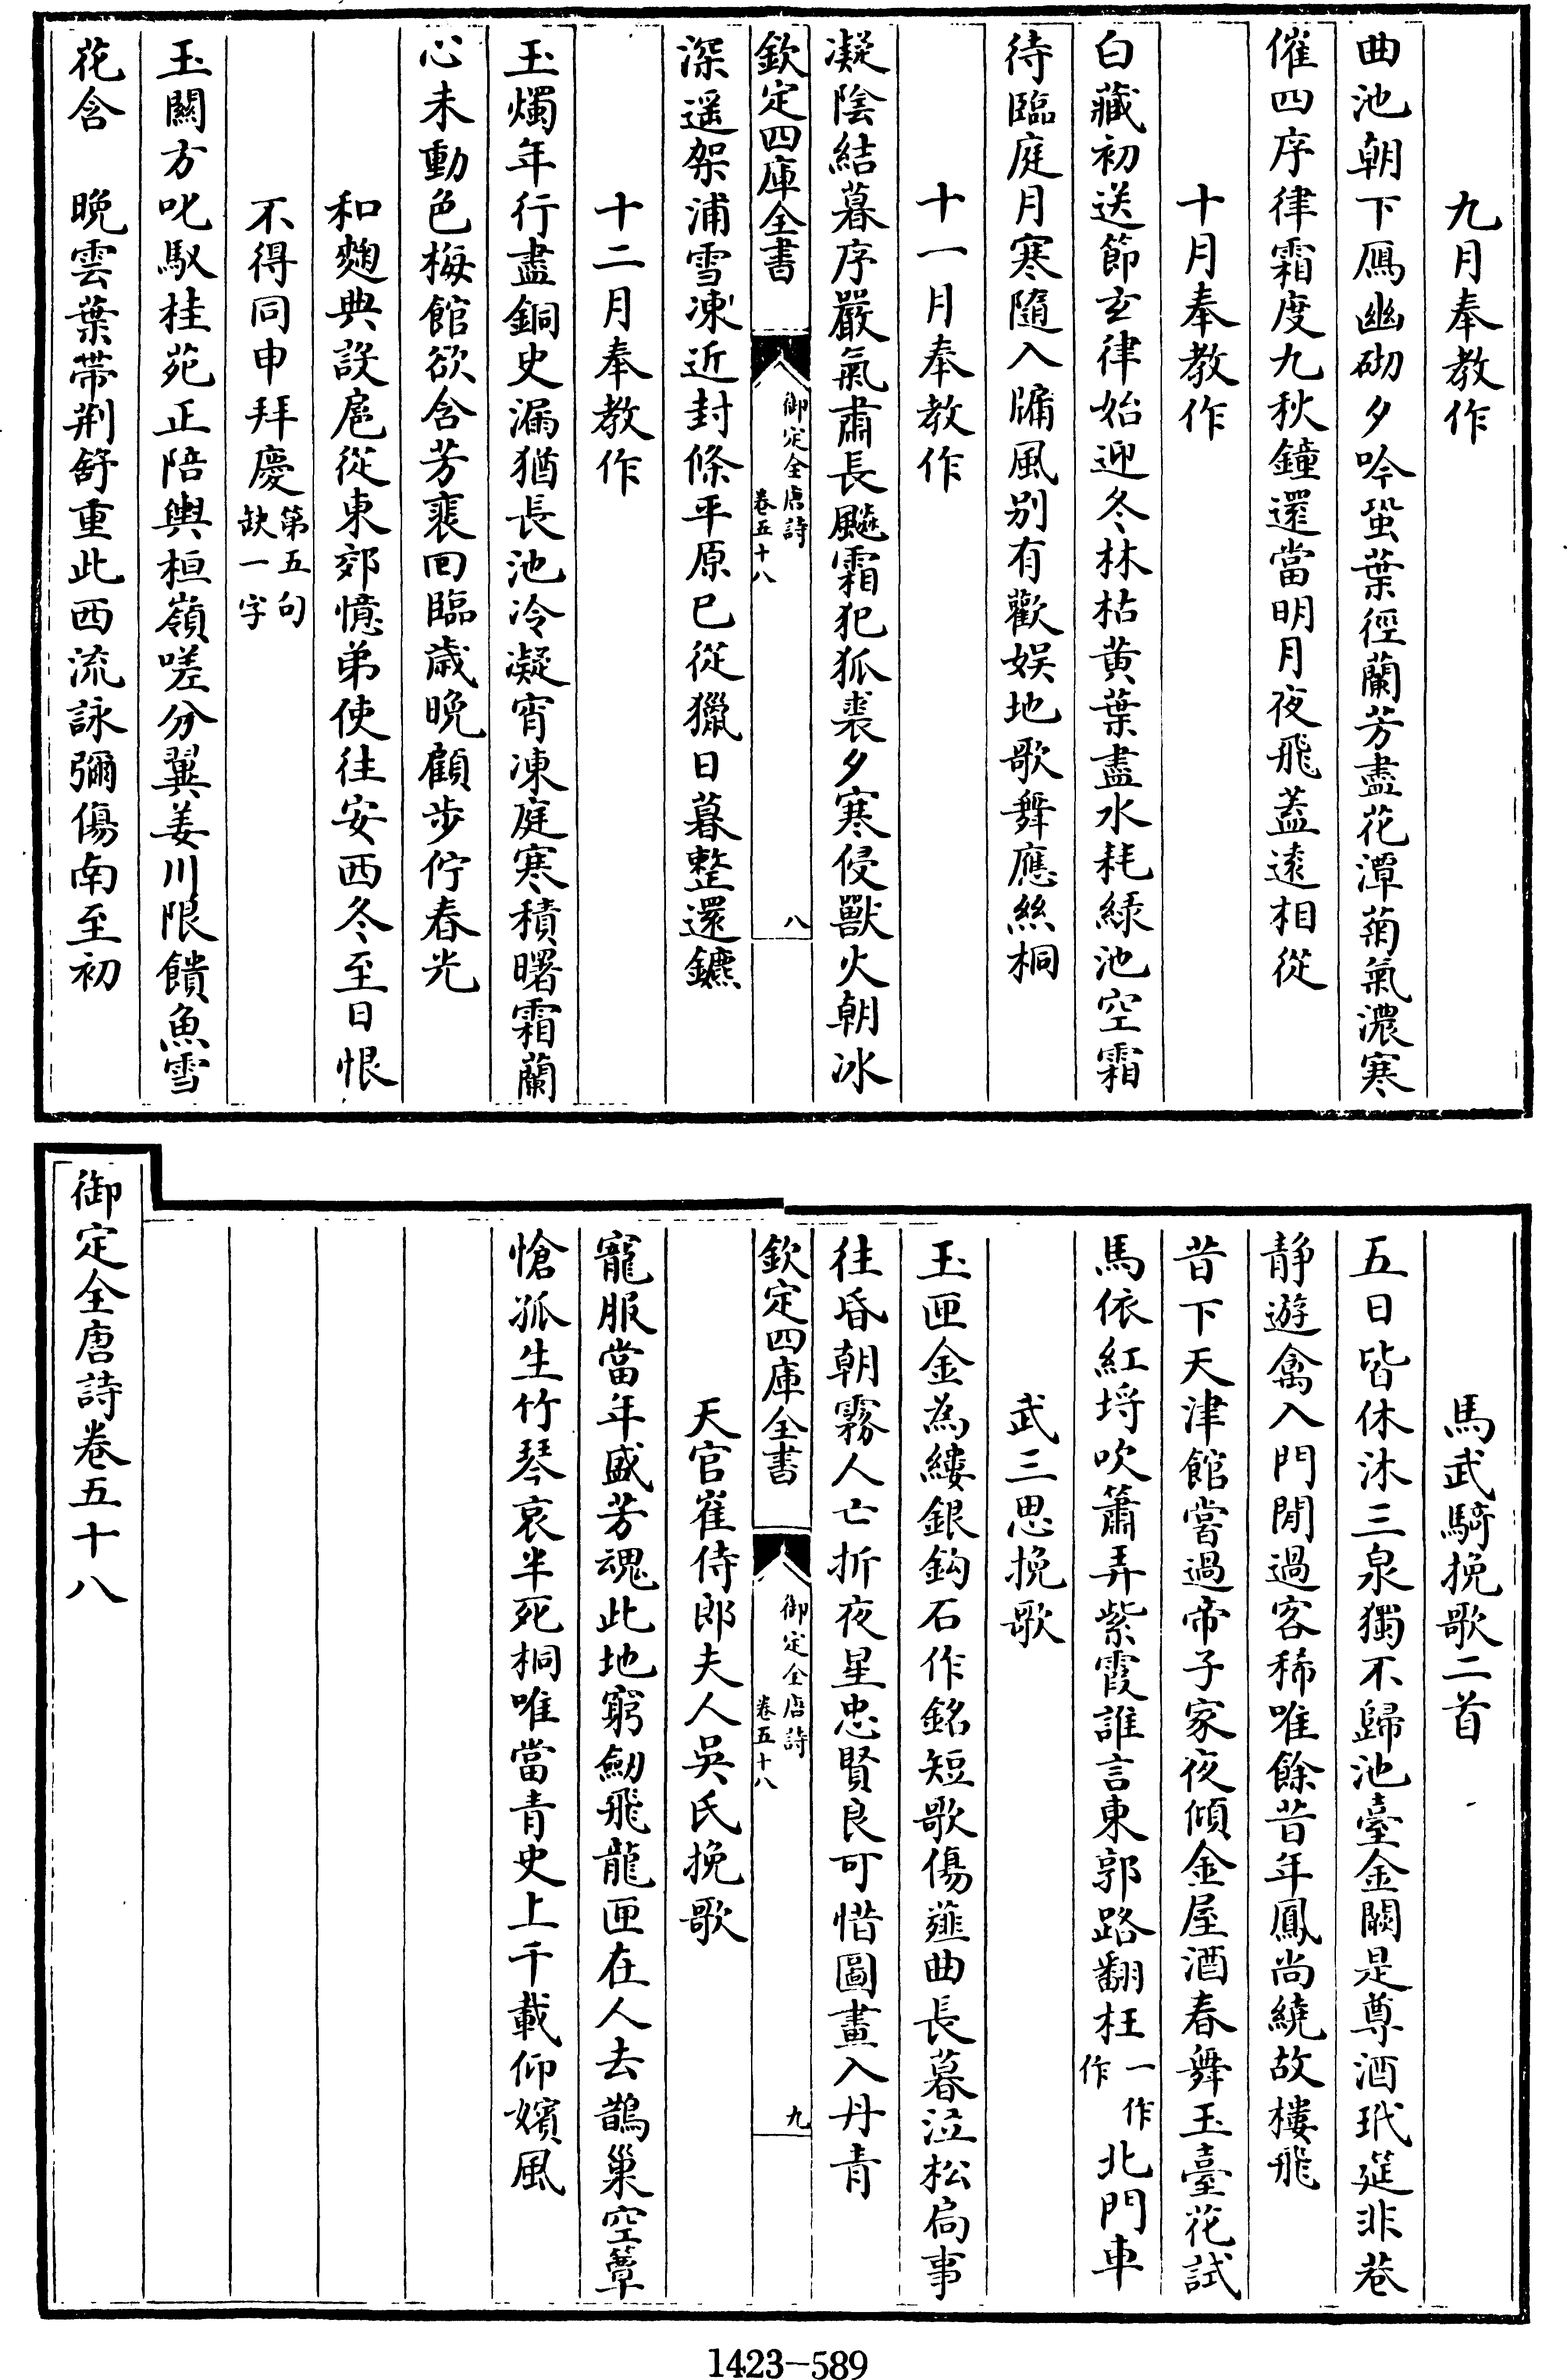 九月奉教作
曲池朝下鴈幽砌夕吟蛩葉徑蘭芳盡花潭菊氣濃寒
催四序律霜度九秋鐘還當明月夜飛蓋遠相從
十月奉教作
白藏初送節玄律始迎冬林枯黄葉盡水耗緑池空霜
待臨庭月寒隨入牖風别有歡娱地歌舞應絲桐
十一月奉教作
凝陰結暮序嚴氣肅長飈霜犯狐裘夕寒侵獸火朝冰
欽定四庫全書
御定全唐詩
卷五十八
八
深遥架浦雪凍近封條平原已從獵日暮整還鑣
十二月奉教作
玉燭年行盡銅史漏猶長池冷凝宵凍庭寒積曙霜蘭
心未動色梅館欲含芳裴回臨歲晚顧步佇春光
和麴典設扈從東郊憶弟使往安西冬至日恨
不得同申拜慶第五句
缺一字
玉關方叱馭桂苑正陪輿桓嶺嗟分翼姜川限饋魚雪
花含　晚雲葉帶荆舒重此西流詠彌傷南至初
馬武騎挽歌二首
五日皆休沐三泉獨不歸池臺金闕是尊酒玳筵非巷
静遊禽入門閒過客稀唯餘昔年鳳尚繞故樓飛
昔下天津館嘗過帝子家夜傾金屋酒春舞玉臺花試
馬依紅埒吹簫弄紫霞誰言東郭路翻枉一作
作北門車
武三思挽歌
玉匣金為縷銀鈎石作銘短歌傷薤曲長暮泣松扃事
往昏朝霧人亡折夜星忠賢良可惜圖畫入丹青
欽定四庫全書
御定全唐詩
卷五十八
九
天官崔侍郎夫人吳氏挽歌
寵服當年盛芳魂此地窮劒飛龍匣在人去鵲巢空蕈
愴孤生竹琴哀半死桐唯當青史上千載仰嬪風
御定全唐詩卷五十八
1423-589